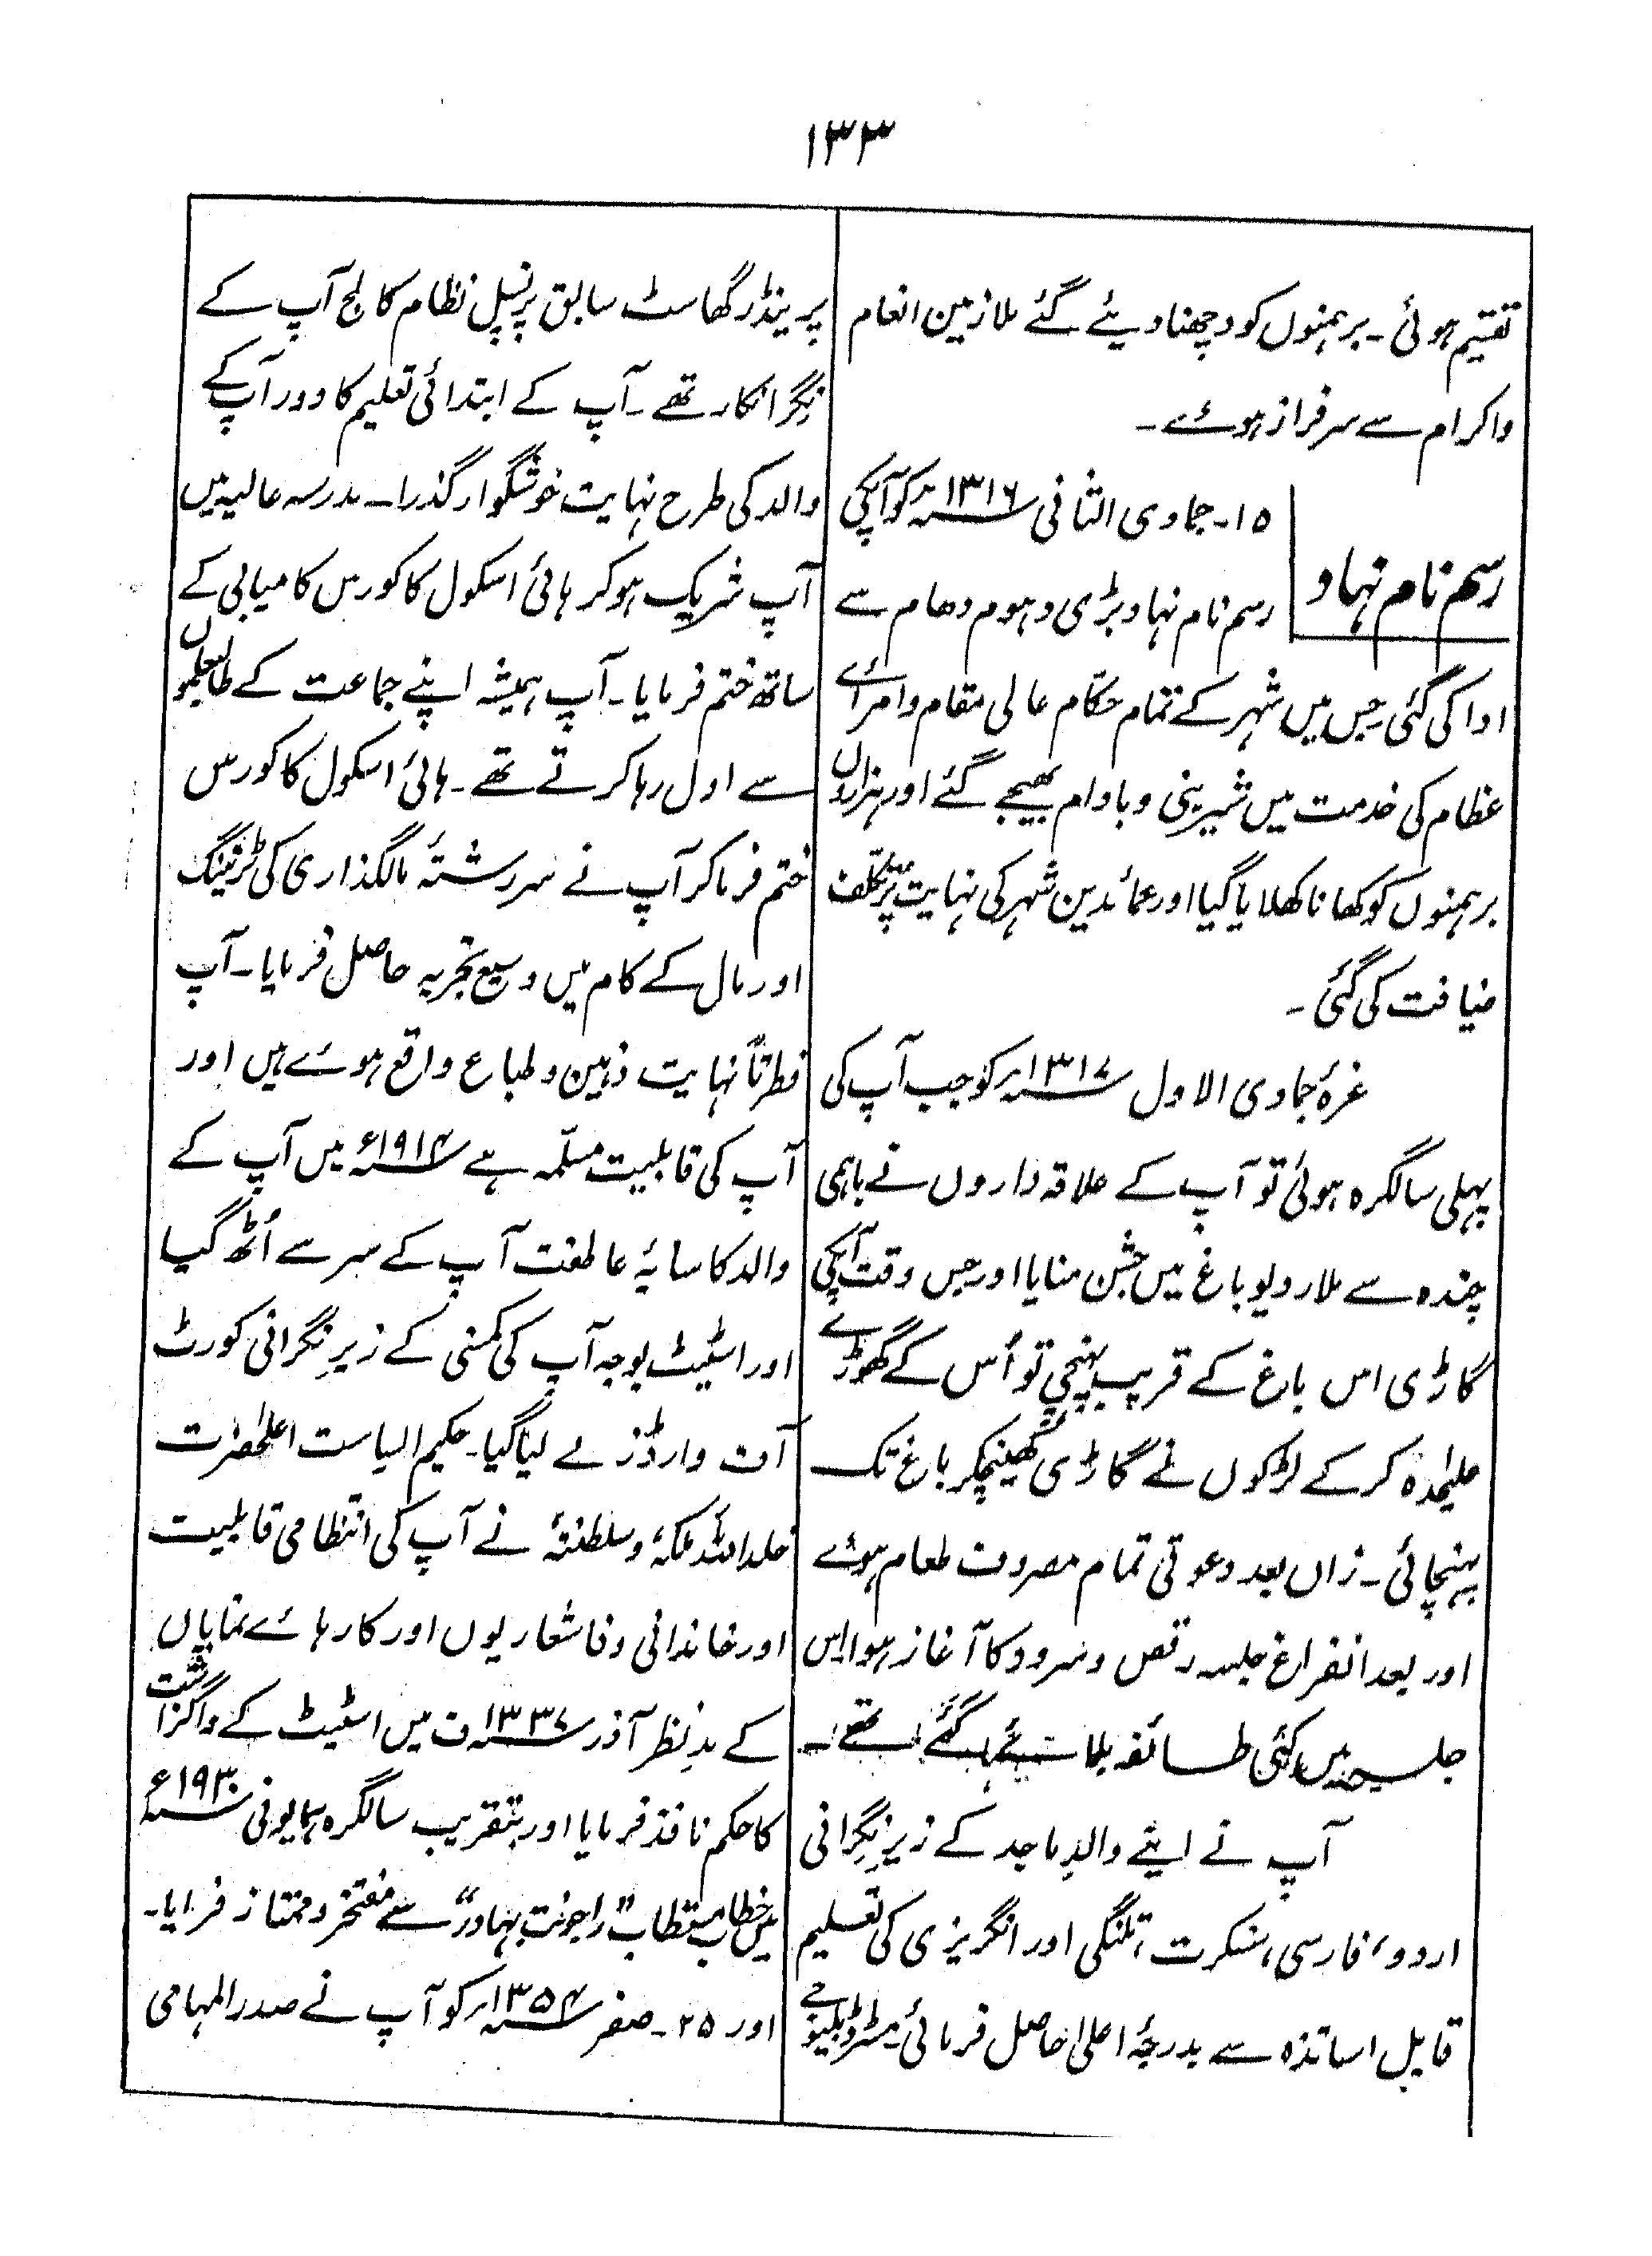 ۱۳۳
تقسیم ہوئی۔ برہمنوں کو دچھنا دیئے گئے ملازمین انعام
واکرام سے سرفراز ہوئے۔
رسم نام نہاد
۱۵۔ جمادی الثانی ۱۳۱۶؁ کو آپکی
رسم نام نہاد بڑی دہوم دھام سے
ادا کی گئی جس میں شہر کے تمام حکّام عالی مقام وامرائے
عظام کی خدمت میں شیرینی و بادام بھیجے گئے اور ہزاروں
برہمنوں کو کھانا کھلایا گیا اور عمائدین شہر کی نہایت پُرتکلف
ضیافت کی گئی۔
غرۂ جمادی الاول ۱۳۱۷؁ کو جب آپ کی
پہلی سالگرہ ہوئی تو آپ کے علاقہ داروں نے باہمی
چندہ سے ملاردیو باغ میں جشن منایا اور جس وقت آپکی
گاڑی اس باغ کے قریب پہنچی تو اُس کے گھوڑے
علیحدہ کرکے لڑکوں نے گاڑی کھینچکر باغ تک
پہنچائی۔ زاں بعد دعوتی تمام مصروف طعام ہوئے
اور بعد انفراغ جلسہ رقص وسرود کا آغاز ہوا اس
جلسہ میں کئی طائفہ بلائے گئے تھے۔
آپ نے اپنے والدِ ماجد کے زیرِ نگرانی
اردو، فارسی، سنسکرت، تلنگی اور انگریزی کی تعلیم
قابل اساتذہ سے بدرجۂ اعلیٰ حاصل فرمائی۔ مسٹر ڈبلیو جے
پرینڈرگھاسٹ سابق پرنسپل نظام کالج آپ کے
نگرانکار تھے۔ آپ کے ابتدائی تعلیم کا دور آپ کے
والد کی طرح نہایت خوشگوار گذرا۔ مدرسہ عالیہ میں
آپ شریک ہوکر ہائی اسکول کا کورس کامیابی کے
ساتھ ختم فرمایا۔ آپ ہمیشہ اپنے جماعت کے طالبعلموں
سے اول رہا کرتے تھے۔ ہائی اسکول کا کورس
ختم فرماکر آپ نے سررشتۂ مالگذاری کی ٹریننگ
اور مال کے کام میں وسیع تجربہ حاصل فرمایا۔ آپ
فطرتاً نہایت ذہین و طباع واقع ہوئے ہیں اور
آپ کی قابلیت مسلّمہ ہے ۱۹۱۴؁ء میں آپ کے
والد کا سایۂ عاطفت آپ کے سر سے اُٹھ گیا
اور اسٹیٹ بوجہ آپ کی کمسنی کے زیرِ نگرانی کورٹ
آف وارڈز لے لیا گیا۔ حکیم السیاست اعلیٰحضرت
خلد اللہ ملکہٗ و سلطنتہٗ نے آپ کی انتظامی قابلیت
اور خاندانی وفاشعاریوں اور کارہائے نمایاں
کے مدِنظر آذر ۱۳۳۷؁ف میں اسٹیٹ کے واگزاشت
کا حکم نافذ فرمایا اور بتقریب سالگرہ ہمایونی ۱۹۳۰؁ء
میں خطاب مستطاب "راجونت بہادر" سے مفتخر و ممتاز فرمایا۔
اور ۲۵۔ صفر ۱۳۵۴؁ کو آپ نے صدر المہامی